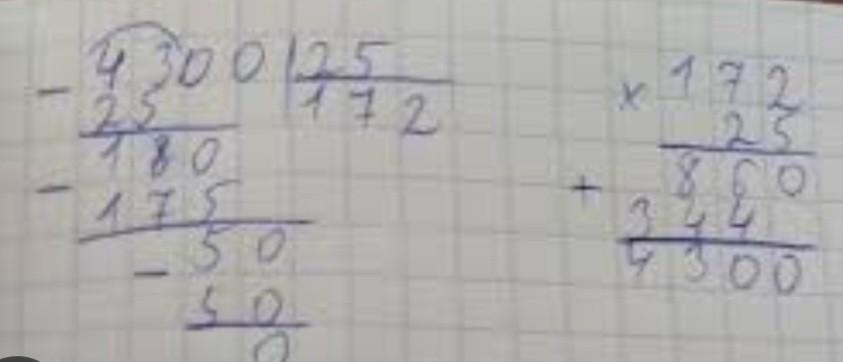 - 4300 | 25
25 | 172
180
- 175
- 50
50
0
× 172
25
+ 860
344
4300